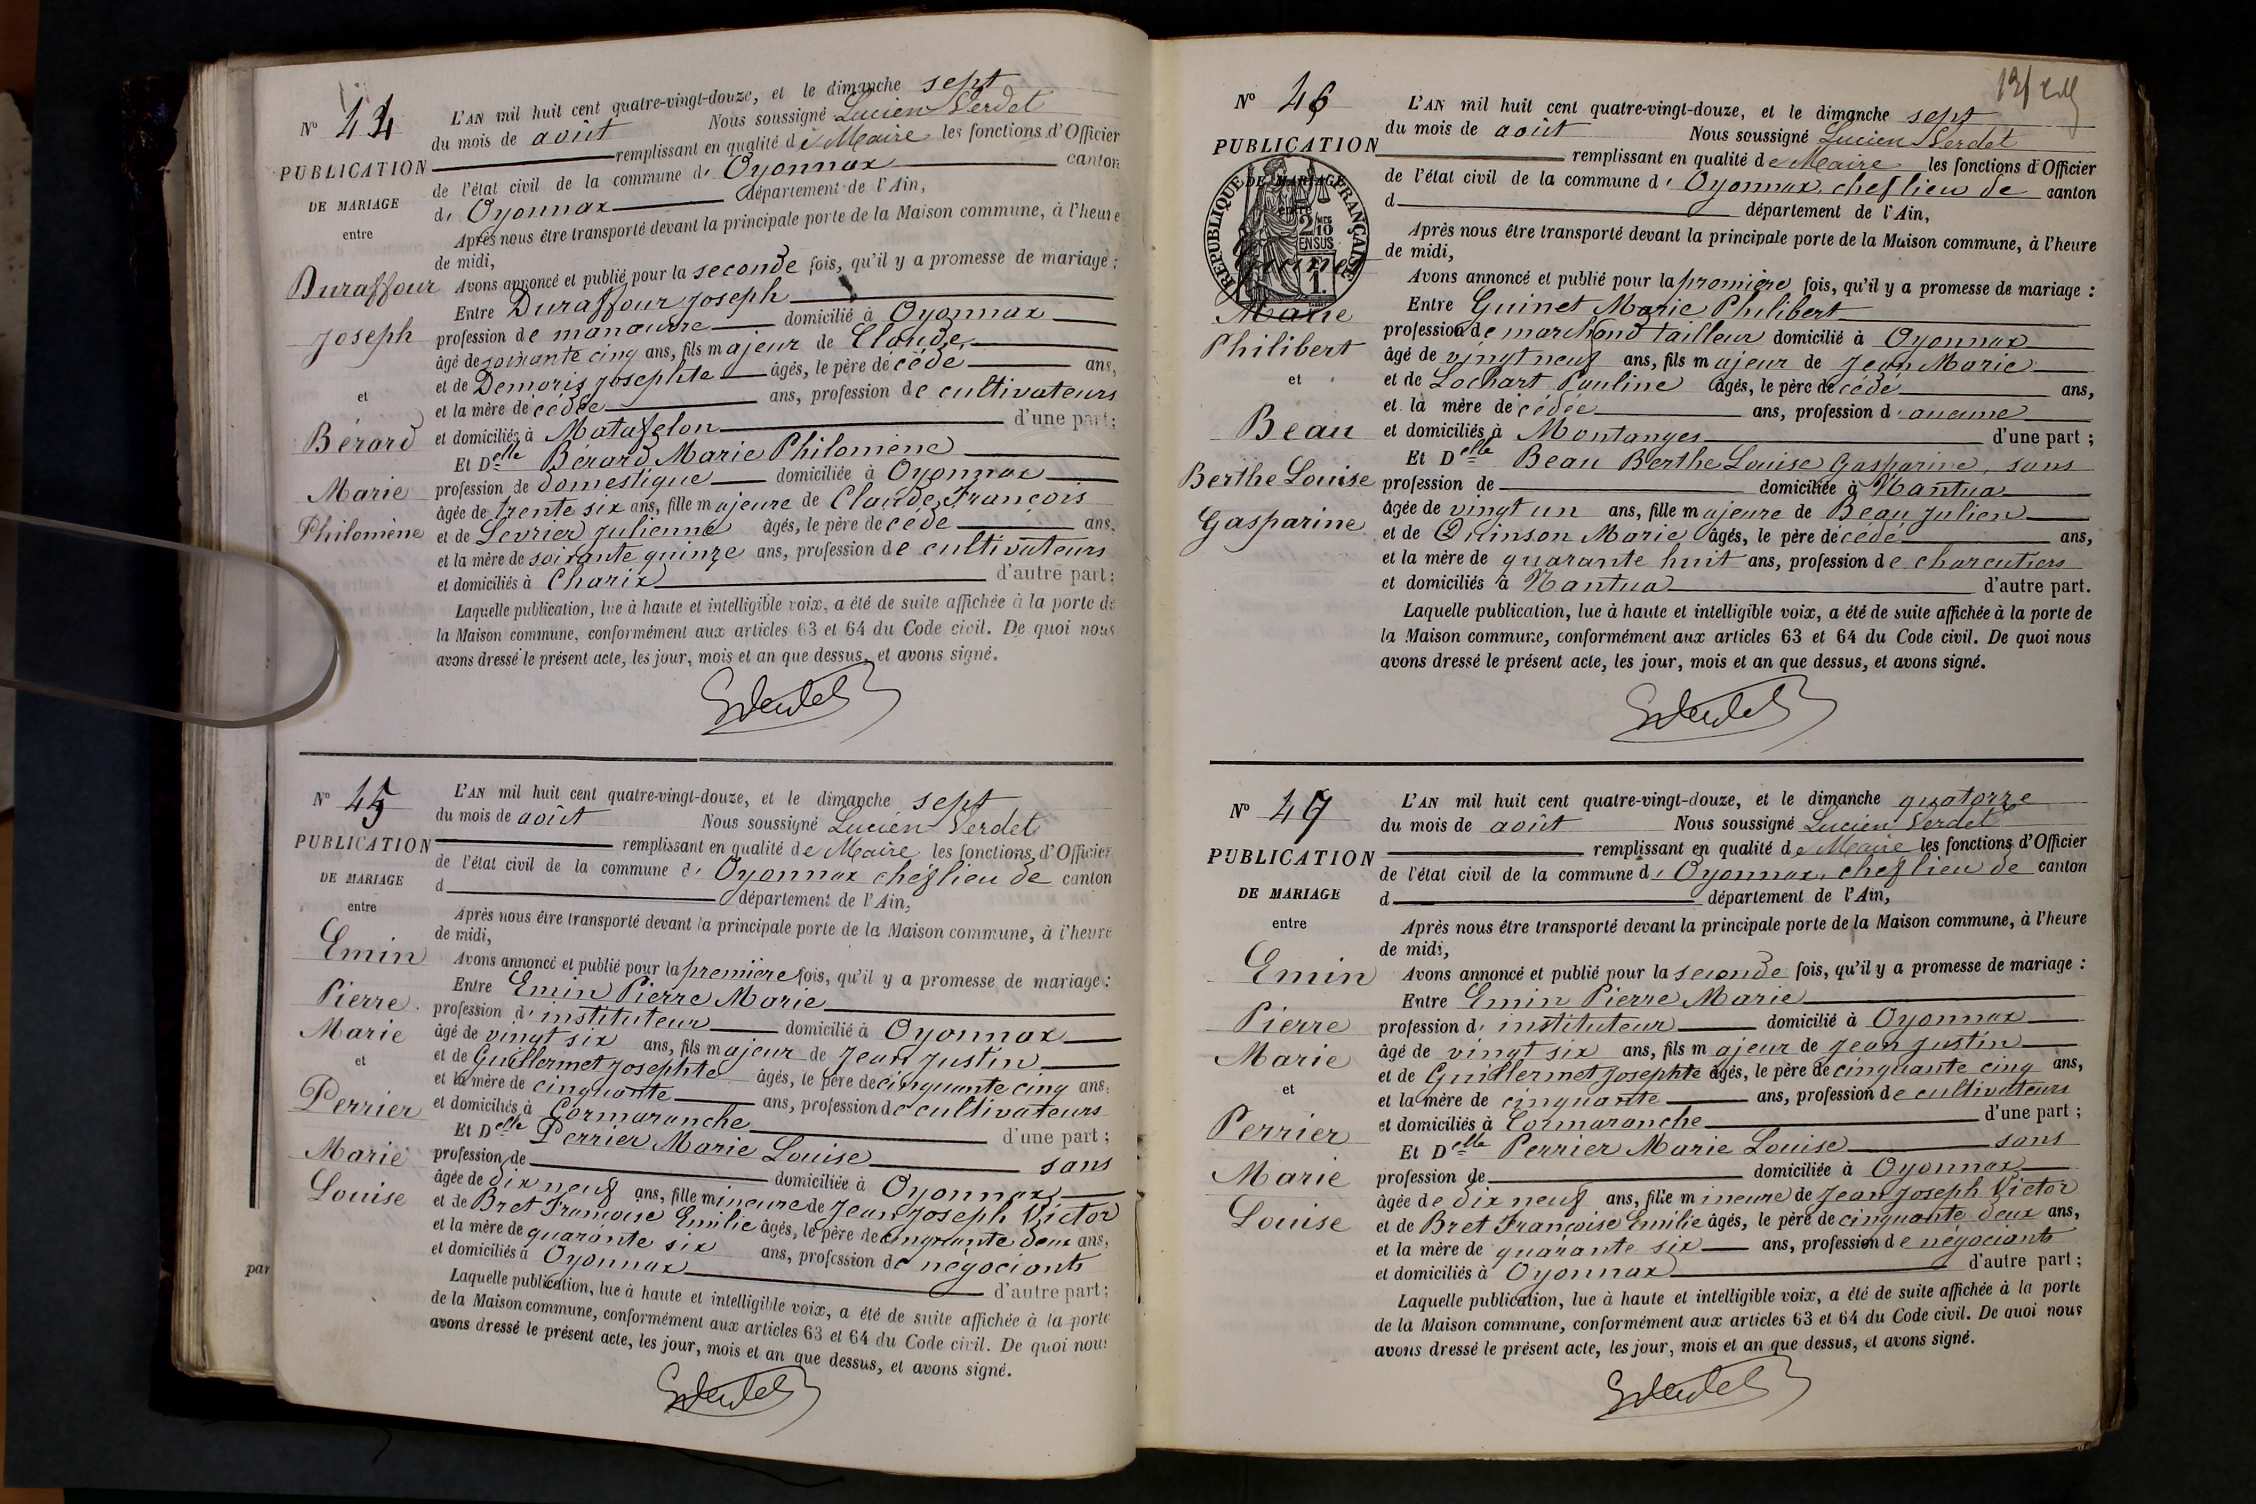 Nº 44
PUBLICATION
DE MARIAGE
entre
Duraffour
Joseph
et
Bérard
Marie
Philomène
L'AN mil huit cent quatre-vingt-douze, et le dimanche sept
du mois de août Nous soussigné Lucien Verdet
remplissant en qualité de Maire les fonctions d'Officier
de l'état civil de la commune d' Oyonnax canton
d' Oyonnax département de l'Ain,
Après nous être transporté devant la principale porte de la Maison commune, à l'heure
de midi,
Avons annoncé et publié pour la seconde fois, qu'il y a promesse de mariage :
Entre Duraffour Joseph
profession de manœuvre domicilié à Oyonnax
âgé de soixante cinq ans, fils majeur de Claude
et de Demoris Josephte âgés, le père décédé ans,
et la mère décédée ans, profession de cultivateurs
et domiciliés à Matafelon d'une part;
Et Delle Berard Marie Philomène
profession de domestique domiciliée à Oyonnax
âgée de trente six ans, fille majeure de Claude François
et de Levrier Julienne âgés, le père décédé ans,
et la mère de soixante quinze ans, profession de cultivateurs
et domiciliés à Charix d'autre part;
Laquelle publication, lue à haute et intelligible voix, a été de suite affichée à la porte de
la Maison commune, conformément aux articles 63 et 64 du Code civil. De quoi nous
avons dressé le présent acte, les jour, mois et an que dessus, et avons signé.
Nº 45
PUBLICATION
DE MARIAGE
entre
Emin
Pierre
Marie
et
Perrier
Marie
Louise
L'AN mil huit cent quatre-vingt-douze, et le dimanche sept
du mois de août Nous soussigné Lucien Verdet
remplissant en qualité de Maire les fonctions d'Officier
de l'état civil de la commune d' Oyonnax chef lieu de canton
d département de l'Ain,
Après nous être transporté devant la principale porte de la Maison commune, à l'heure
de midi,
Avons annoncé et publié pour la première fois, qu'il y a promesse de mariage :
Entre Emin Pierre Marie
profession d' instituteur domicilié à Oyonnax
âgé de vingt six ans, fils majeur de Jean Justin
et de Guillermet Josephte âgés, le père de cinquante cinq ans,
et la mère de cinquante ans, profession de cultivateurs
et domiciliés à Cormaranche d'une part ;
Et Delle Perrier Marie Louise sans
profession de domiciliée à Oyonnax
âgée de dix neuf ans, fille mineure de Jean Joseph Victor
et de Bret Françoise Emilie âgés, le père de cinquante deux ans,
et la mère de quarante six ans, profession de négociants
et domiciliés à Oyonnax d'autre part;
Laquelle publication, lue à haute et intelligible voix, a été de suite affichée à la porte
de la Maison commune, conformément aux articles 63 et 64 du Code civil. De quoi nous
avons dressé le présent acte, les jour, mois et an que dessus, et avons signé.
par
Nº 46
PUBLICATION
DE MARIAGE
entre
REPUBLIQUE FRANÇAISE
2 10
EN SUS
1.
Guinet
Marie
Philibert
et
Beau
Berthe Louise
Gasparine
L'AN mil huit cent quatre-vingt-douze, et le dimanche sept
du mois de août Nous soussigné Lucien Verdet
remplissant en qualité de Maire les fonctions d'Officier
de l'état civil de la commune d' Oyonnax, chef lieu de canton
d département de l'Ain,
Après nous être transporté devant la principale porte de la Maison commune, à l'heure
de midi,
Avons annoncé et publié pour la première fois, qu'il y a promesse de mariage :
Entre Guinet Marie Philibert
profession de marchand tailleur domicilié à Oyonnax
âgé de vingt neuf ans, fils majeur de Jean Marie
et de Lochart Pauline âgés, le père décédé ans,
et la mère décédée ans, profession d' aucune
et domiciliés à Montanges d'une part ;
Et Delle Beau Berthe Louise Gasparine, sans
profession de domiciliée à Nantua
âgée de vingt un ans, fille majeure de Beau Julien
et de Quinson Marie âgés, le père décédé ans,
et la mère de quarante huit ans, profession de charcutiers
et domiciliés à Nantua d'autre part.
Laquelle publication, lue à haute et intelligible voix, a été de suite affichée à la porte de
la Maison commune, conformément aux articles 63 et 64 du Code civil. De quoi nous
avons dressé le présent acte, les jour, mois et an que dessus, et avons signé.
Nº 47
PUBLICATION
DE MARIAGE
entre
Emin
Pierre
Marie
et
Perrier
Marie
Louise
L'AN mil huit cent quatre-vingt-douze, et le dimanche quatorze
du mois de août Nous soussigné Lucien Verdet
remplissant en qualité de Maire les fonctions d'Officier
de l'état civil de la commune d' Oyonnax, chef lieu de canton
d département de l'Ain,
Après nous être transporté devant la principale porte de la Maison commune, à l'heure
de midi,
Avons annoncé et publié pour la seconde fois, qu'il y a promesse de mariage :
Entre Emin Pierre Marie
profession d' instituteur domicilié à Oyonnax
âgé de vingt six ans, fils majeur de Jean Justin
et de Guillermet Josephte âgés, le père de cinquante cinq ans,
et la mère de cinquante ans, profession de cultivateurs
et domiciliés à Cormaranche d'une part ;
Et Delle Perrier Marie Louise sans
profession de domiciliée à Oyonnax
âgée de dix neuf ans, fille mineure de Jean Joseph Victor
et de Bret Françoise Emilie âgés, le père de cinquante deux ans,
et la mère de quarante six ans, profession de négociants
et domiciliés à Oyonnax d'autre part ;
Laquelle publication, lue à haute et intelligible voix, a été de suite affichée à la porte
de la Maison commune, conformément aux articles 63 et 64 du Code civil. De quoi nous
avons dressé le présent acte, les jour, mois et an que dessus, et avons signé.